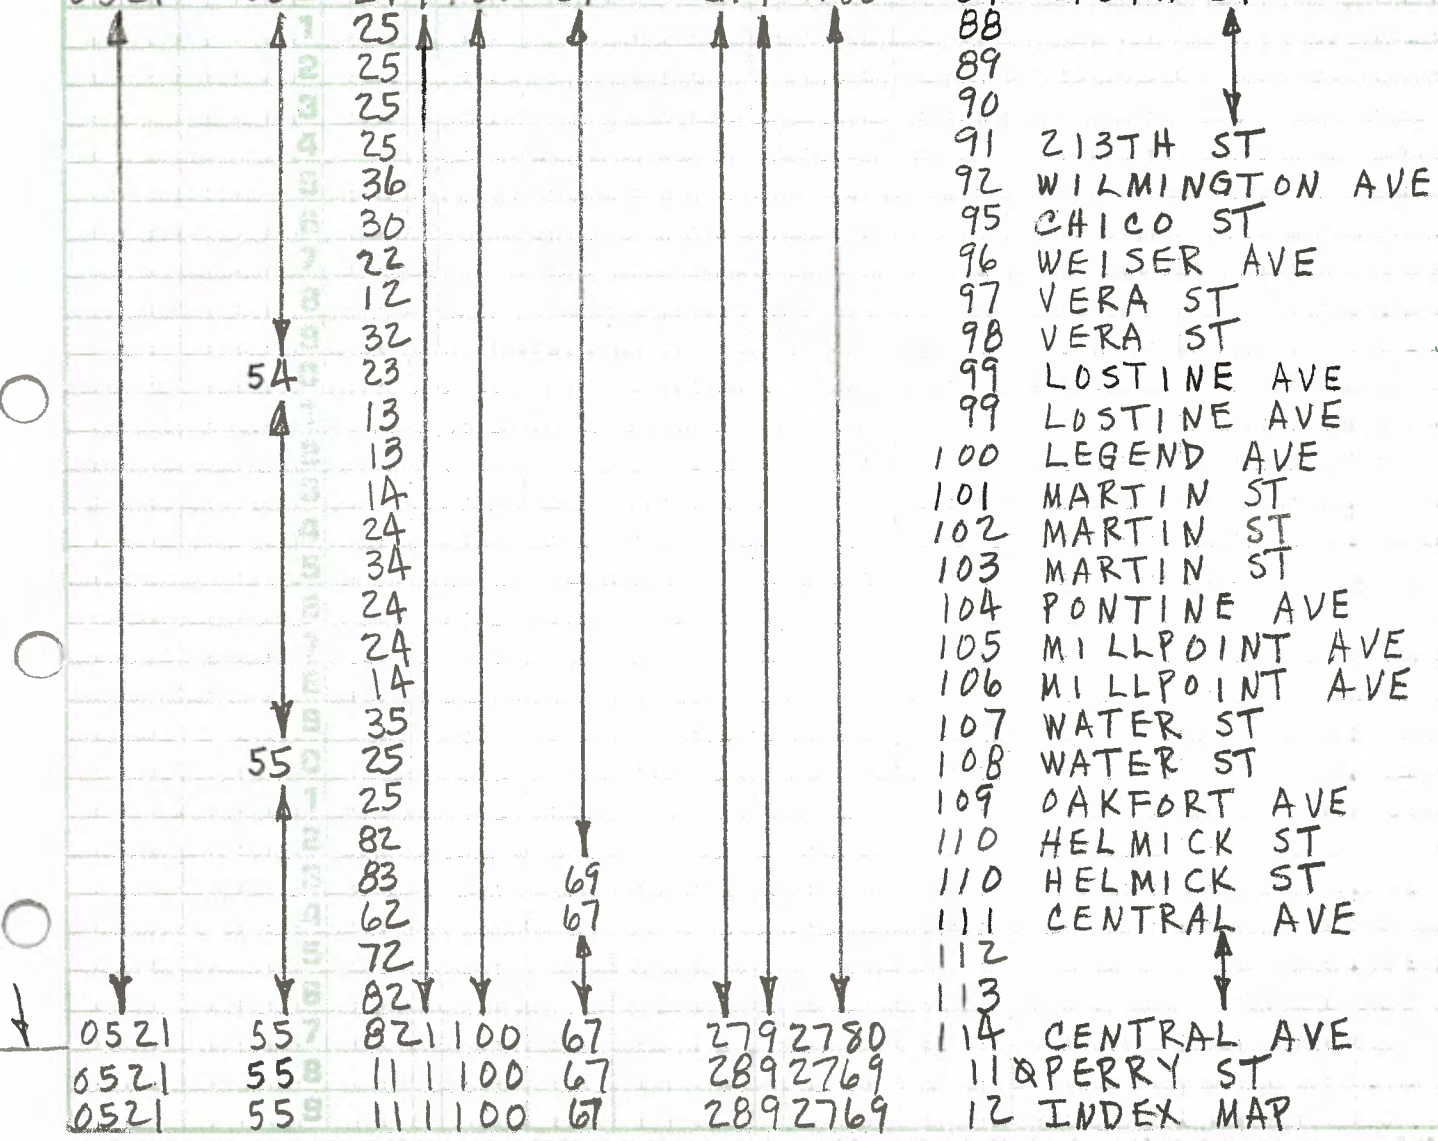 0521
25 88
25 89
25 90
25 91 213TH ST
36 92 WILMINGTON AVE
30 95 CHICO ST
22 96 WEISER AVE
12 97 VERA ST
32 98 VERA ST
54 23 99 LOSTINE AVE
13 99 LOSTINE AVE
13 100 LEGEND AVE
14 101 MARTIN ST
24 102 MARTIN ST
34 103 MARTIN ST
24 104 PONTINE AVE
24 105 MILLPOINT AVE
14 106 MILLPOINT AVE
35 107 WATER ST
55 25 108 WATER ST
25 109 OAKFORT AVE
82 110 HELMICK ST
83 69 110 HELMICK ST
62 67 111 CENTRAL AVE
72 112
82 113
0521 55 821100 67 2792780 114 CENTRAL AVE
0521 55 111100 67 2892769 11 PERRY ST
0521 55 111100 67 2892769 12 INDEX MAP